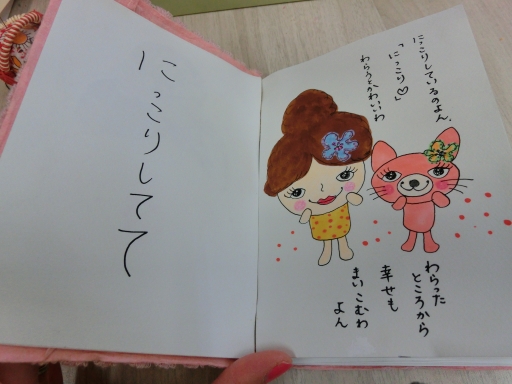 にっこりしているのよん、
「にっこり♡」
わらうとかわいいわ
わらった
ところから
幸せも
まいこむわ
よん
にっこりしてて